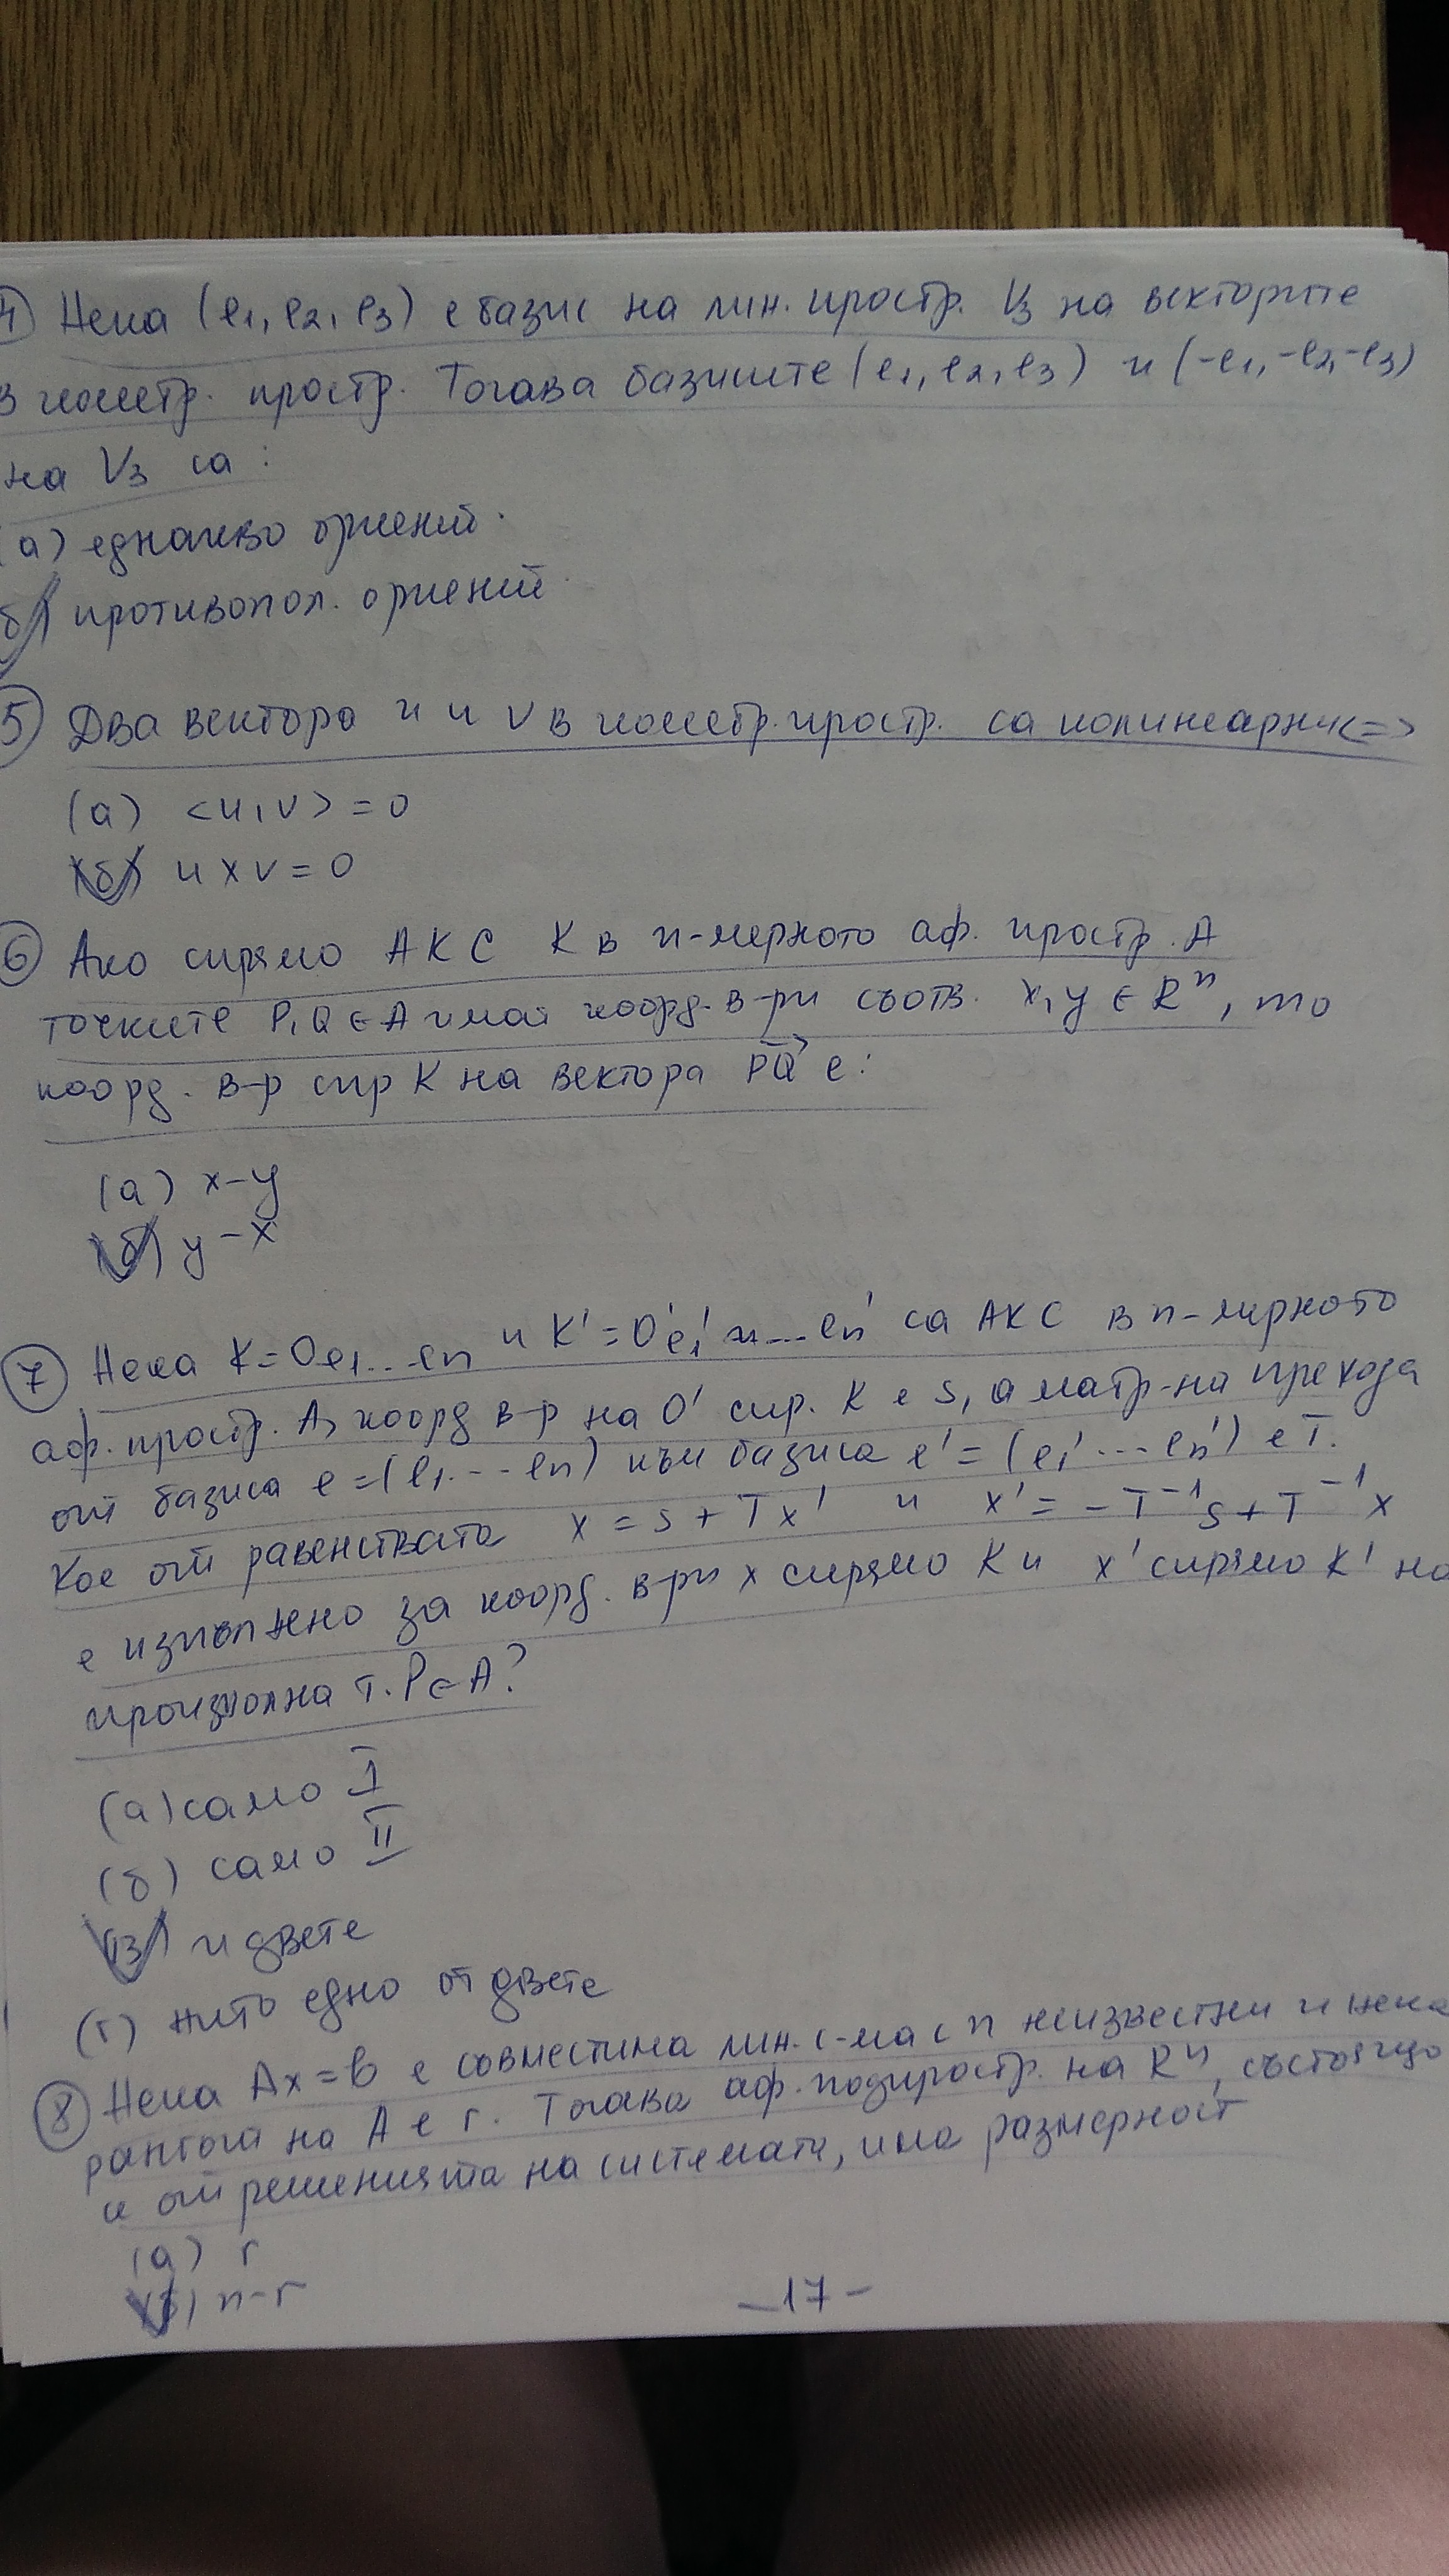 4) Нека (e1, e2, e3) е базис на лин. простр. V3 на векторите
в геометр. простр. Тогава базисите (e1, e2, e3) и (-e1, -e2, -e3)
на V3 са:
(а) еднакво ориений.
(б) противопол. ориений.
5) Два вектора u и v в геометр. простр. са колинеарни <=>
(а) <u, v> = 0
(б) u x v = 0
6) Ако спрямо АКС K в n-мерното аф. простр. A
точките P, Q ∈ A имат коорд. в-ри съотв. x, y ∈ Rⁿ, то
коорд. в-р спр K на вектора PQ е:
(а) x-y
(б) y-x
7) Нека K=Oe1...en и K'=O'e1'...en' са АКС в n-мерното
аф. простр. A, коорд в-р на O' спр. K е s, а матр-на прехода
от базиса e=(e1...en) към базиса e'=(e1'...en') е T.
Кое от равенствата x = s + Tx' и x' = -T⁻¹s + T⁻¹x
е изпълнено за коорд. в-ри x спрямо K и x' спрямо K' на
произволна т. P ∈ A?
(а) само I
(б) само II
(в) и двете
(г) нито едно от двете
8) Нека Ax=b е съвместима лин. с-ма с n неизвестни и нека
рангът на A е r. Тогава аф. подпростр. на Rⁿ, състоящо
се от решенията на системата, има размерност
(а) r
(б) n-r
-17-